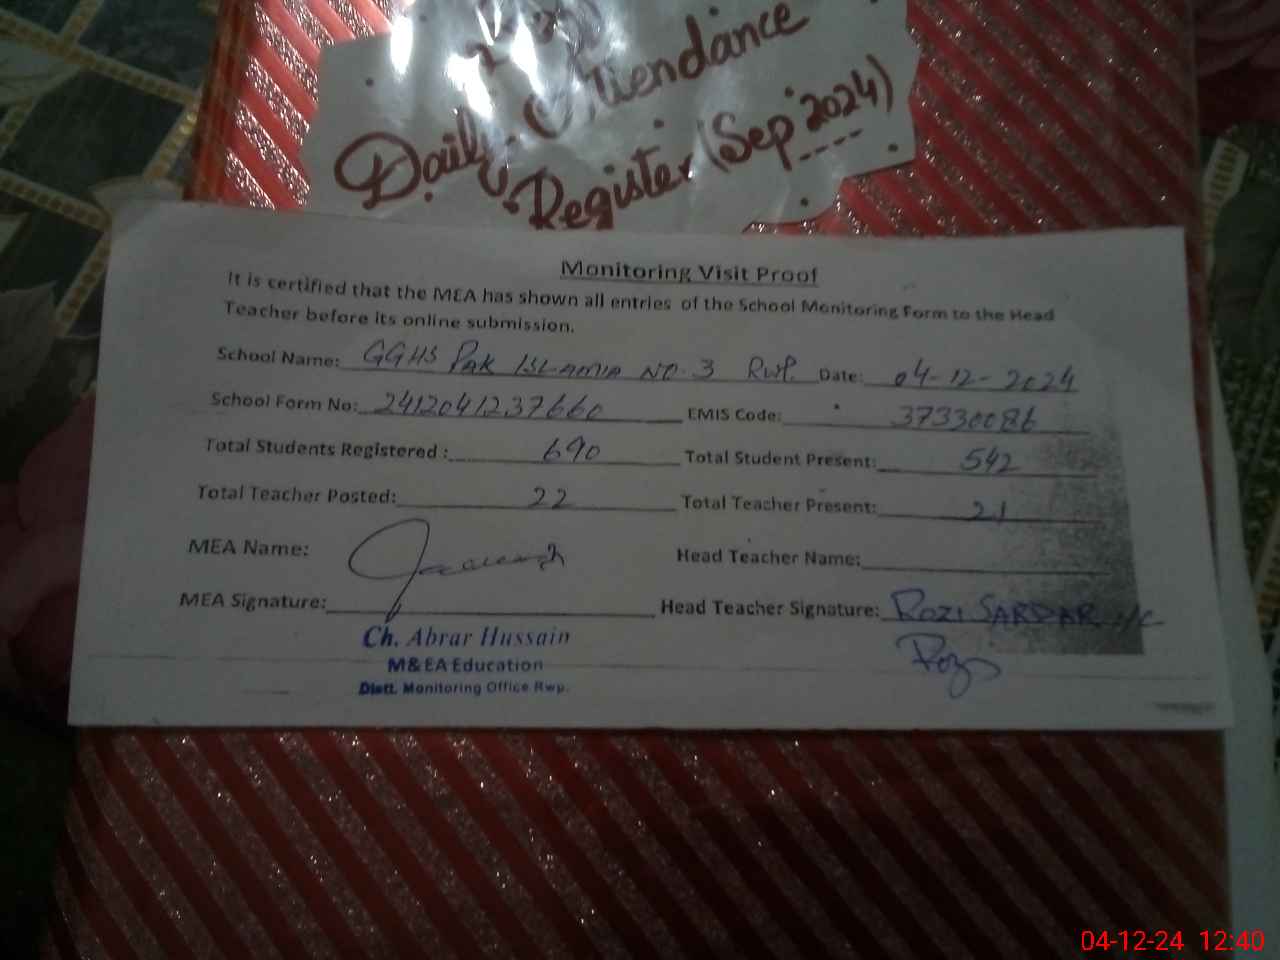 Daily Attendance
Register (Sep 2024)
Monitoring Visit Proof
It is certified that the MEA has shown all entries of the School Monitoring Form to the Head
Teacher before its online submission.
School Name: GGHS PAK ISLAMIA NO. 3 RWP. Date: 04-12-2024
School Form No: 2412041237660 EMIS Code: 37330086
Total Students Registered : 690 Total Student Present: 542
Total Teacher Posted: 22 Total Teacher Present: 21
MEA Name: Head Teacher Name:
MEA Signature: Head Teacher Signature: ROZI SARDAR I/C
Ch. Abrar Hussain
M&EA Education
Distt. Monitoring Office Rwp.
04-12-24 12:40